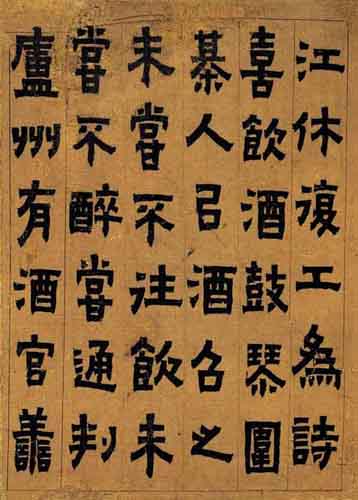 江休復工爲詩
喜飲酒鼓琴圍
棊人㠯酒召之
未嘗不往飲未
嘗不醉嘗通判
廬州有酒官善